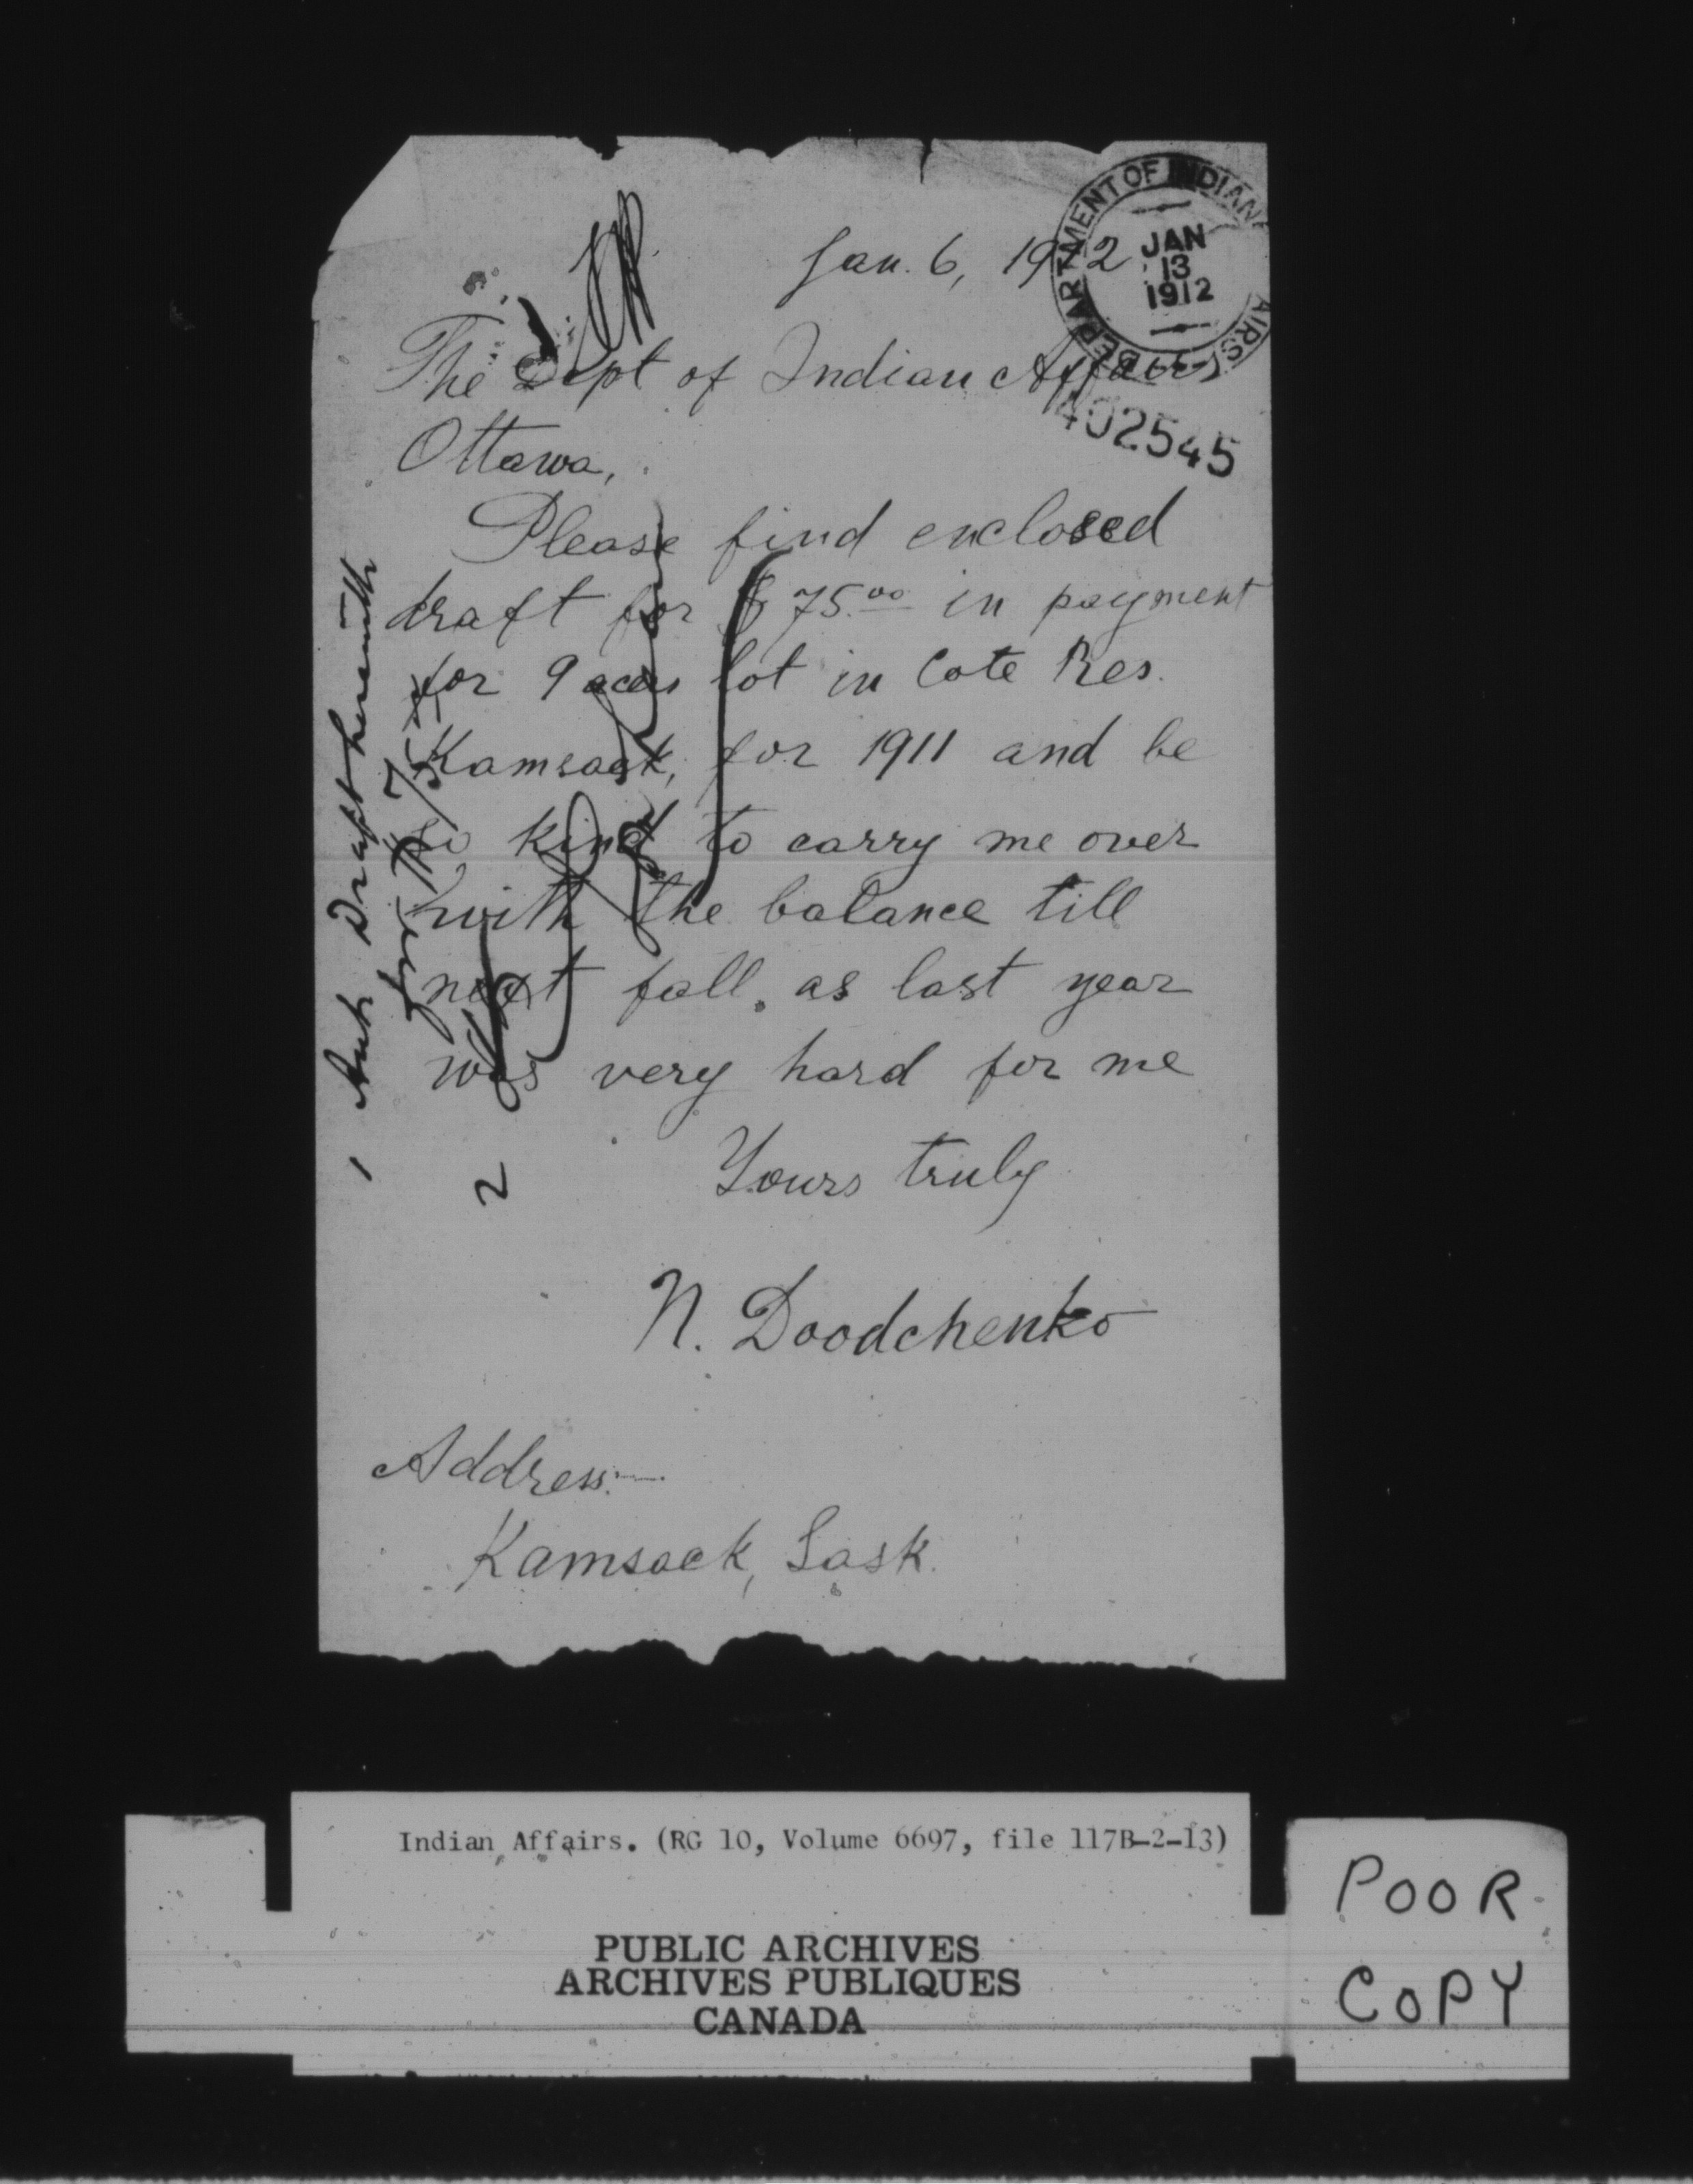 Jan. 6, 1912
DEPARTMENT OF INDIAN AFFAIRS
JAN
13
1912
The Dept of Indian Affairs
402545
Ottawa,
Please find enclosed
draft for $75.00 in payment
for 9 acers lot in Cote Res.
Kamsack, for 1911 and be
so kind to carry me over
with the balance till
next fall. as last year
was very hard for me
Yours truly
N. Doodchenko
Address:—
Kamsack, Sask.
1 Draft herewith
for $75
2
Indian Affairs. (RG 10, Volume 6697, file 117B-2-13)
PUBLIC ARCHIVES
ARCHIVES PUBLIQUES
CANADA
POOR
COPY